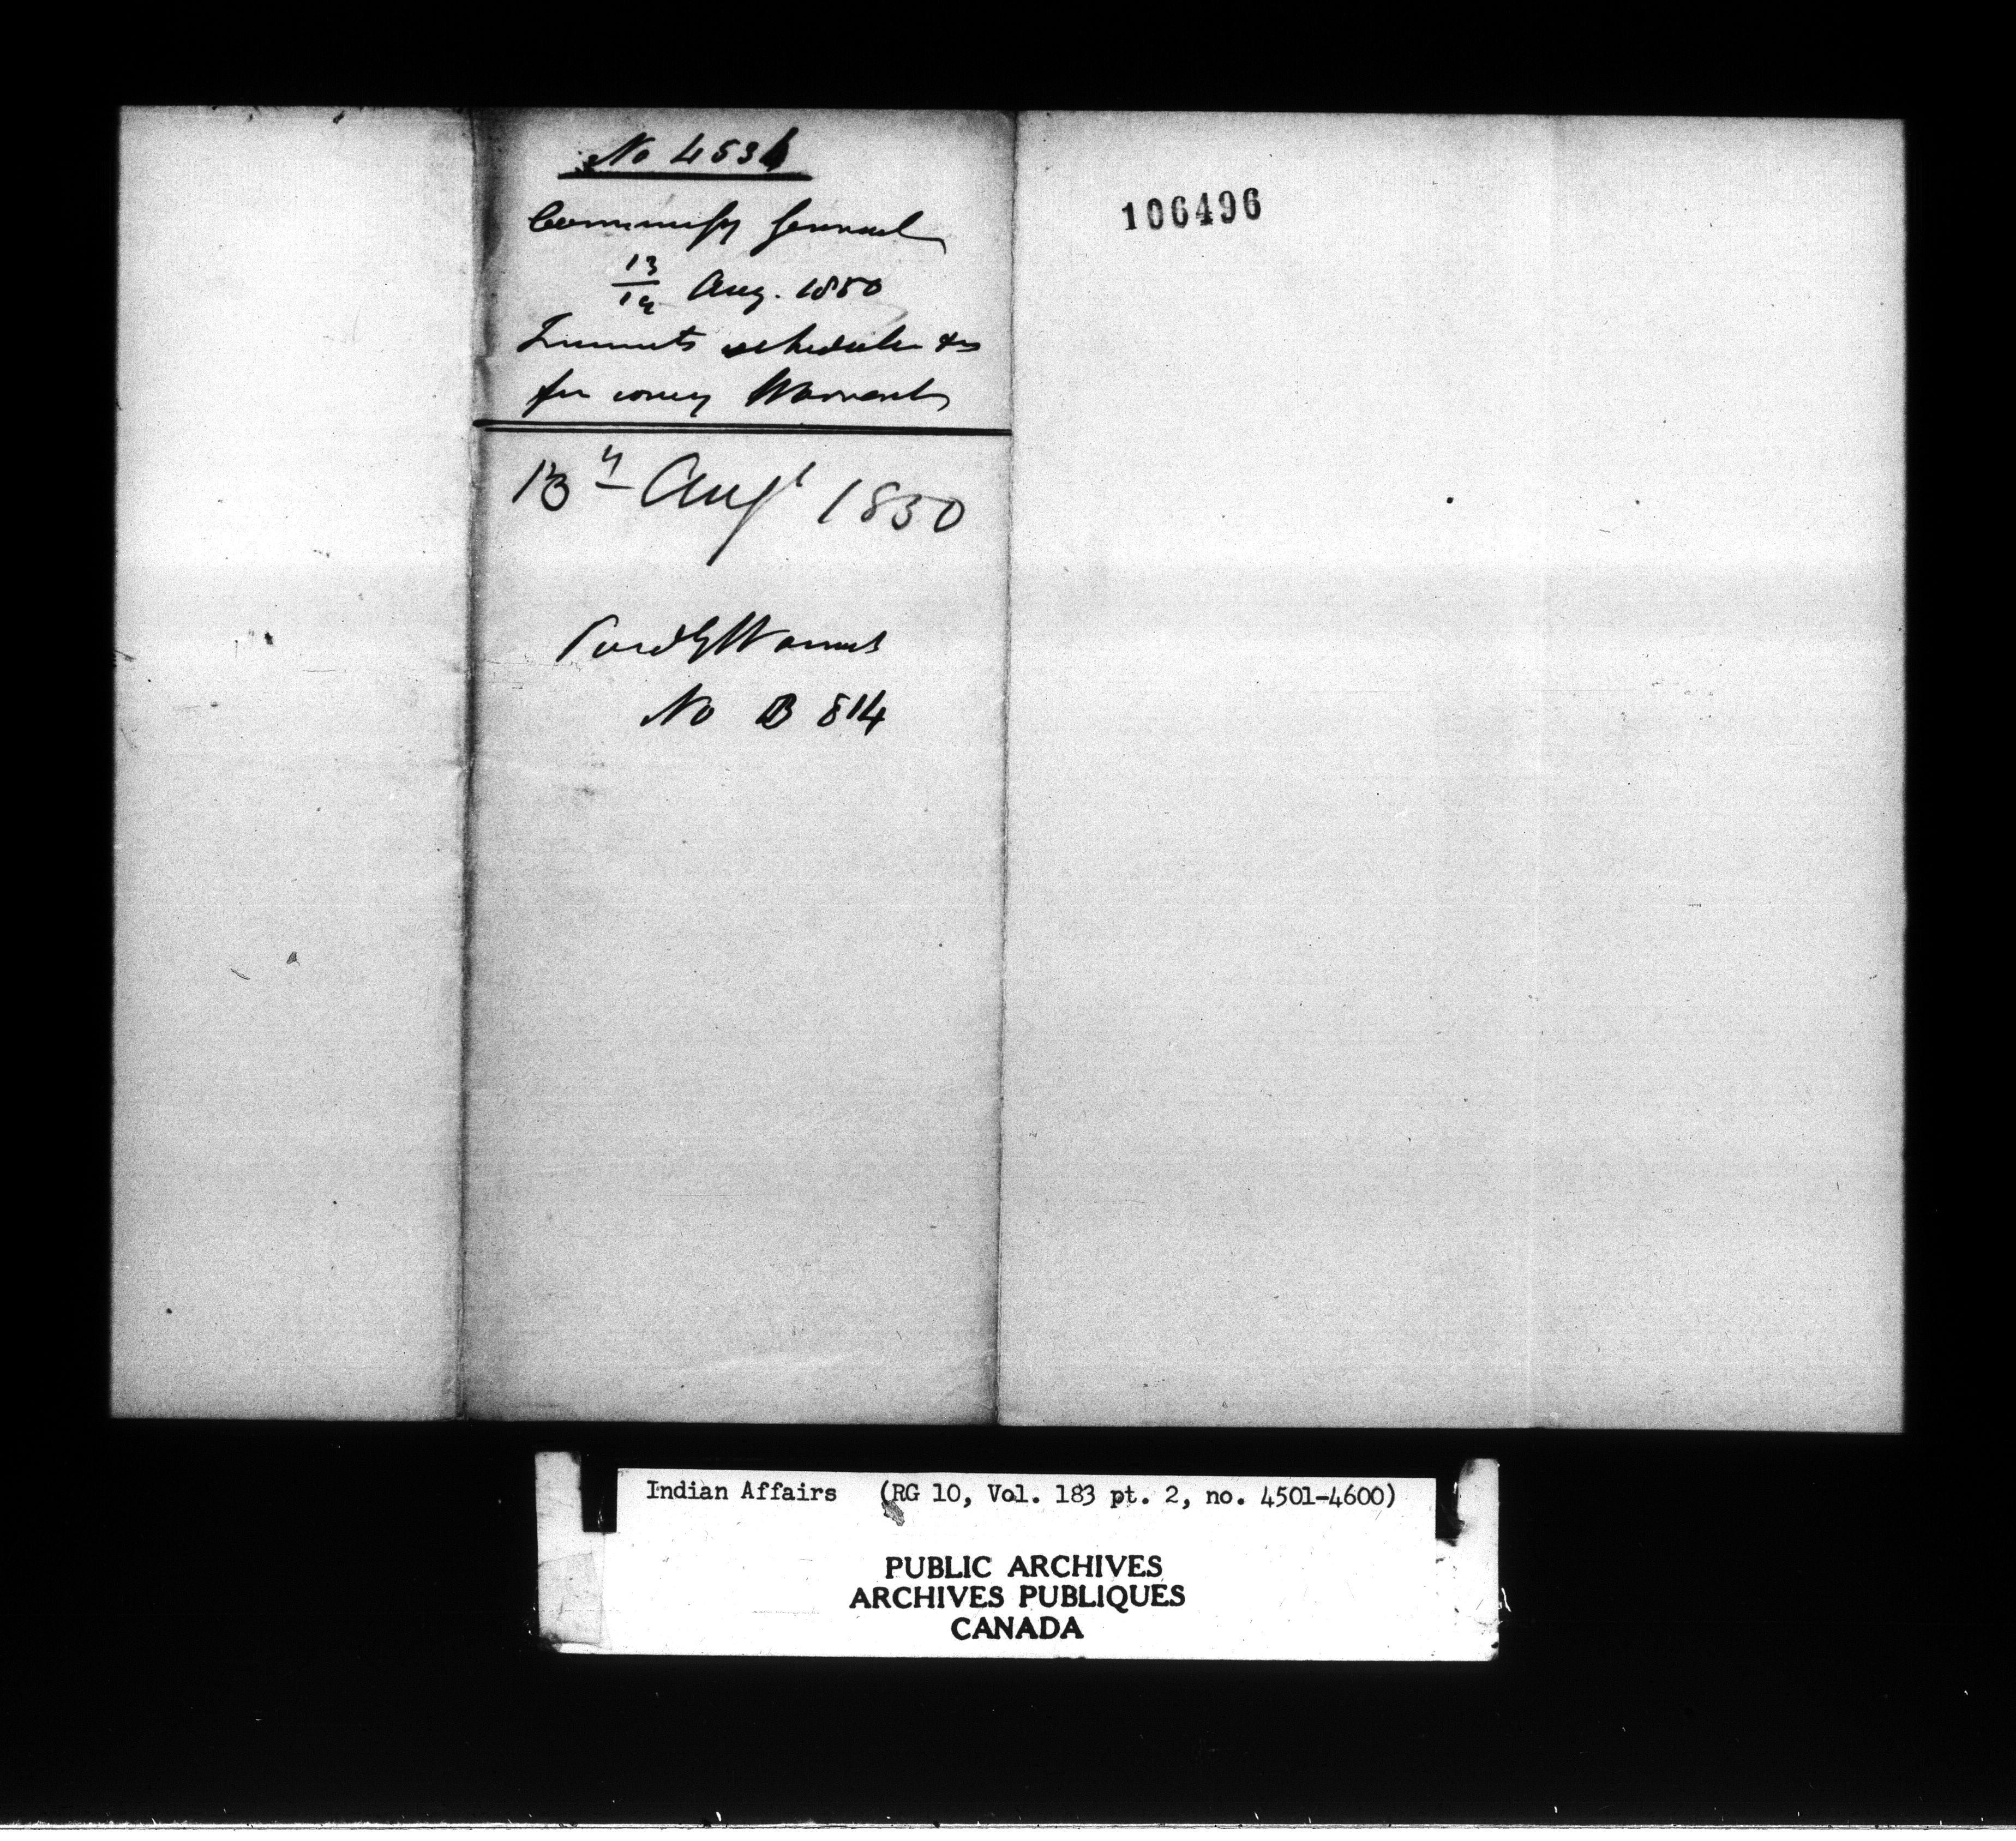 No 4531
Commissy General
13/14 Aug. 1850
Transmits schedules &c
for Warrants
13th Augt 1850
Warrant
No B 814
106496
Indian Affairs (RG 10, Vol. 183 pt. 2, no. 4501-4600)
PUBLIC ARCHIVES
ARCHIVES PUBLIQUES
CANADA